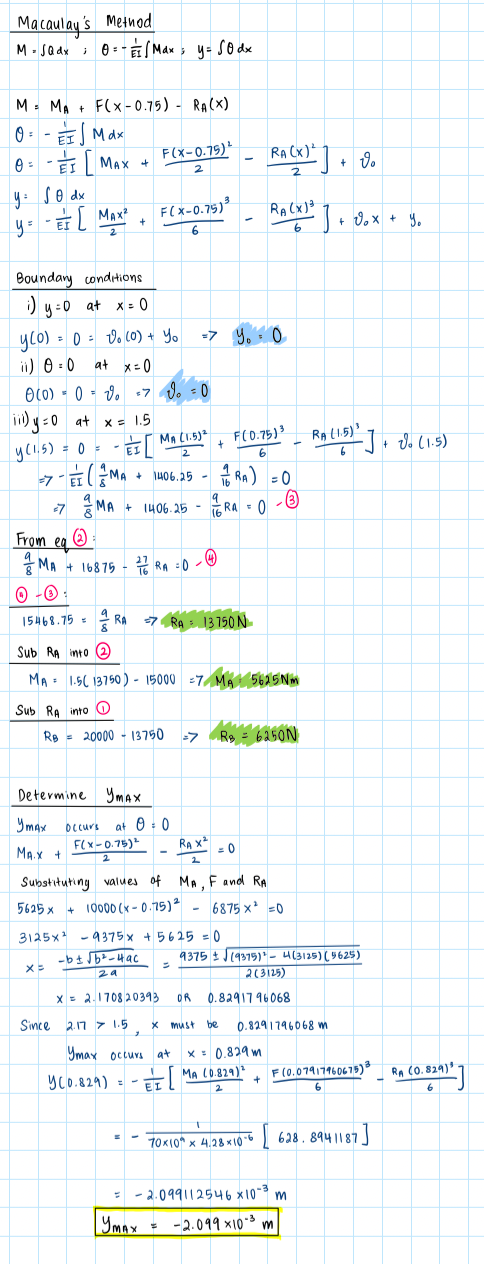 Macaulay's Method
M = ∫Q dx ; θ = -1/EI ∫Mdx ; y = ∫θ dx
M = M_A + F(x-0.75) - R_A(x)
θ = -1/EI ∫ M dx
θ = -1/EI [ M_A x + F(x-0.75)²/2 - R_A(x)²/2 ] + ϑ₀
y = ∫θ dx
y = -1/EI [ M_A x²/2 + F(x-0.75)³/6 - R_A(x)³/6 ] + ϑ₀x + y₀
Boundary conditions
i) y=0 at x=0
y(0) = 0 = ϑ₀(0) + y₀ => y₀ = 0
ii) θ=0 at x=0
θ(0) = 0 = ϑ₀ => ϑ₀ = 0
iii) y=0 at x = 1.5
y(1.5) = 0 = -1/EI [ M_A(1.5)²/2 + F(0.75)³/6 - R_A(1.5)³/6 ] + ϑ₀(1.5)
=> -1/EI ( 9/8 M_A + 1406.25 - 9/16 R_A ) = 0
=> 9/8 M_A + 1406.25 - 9/16 R_A = 0 - ③
From eq ② :
9/8 M_A + 16875 - 27/16 R_A = 0 - ④
④ - ③ :
15468.75 = 9/8 R_A => R_A = 13750N
Sub R_A into ②
M_A = 1.5(13750) - 15000 => M_A = 5625Nm
Sub R_A into ①
R_B = 20000 - 13750 => R_B = 6250N
Determine y_MAX
y_max occurs at θ = 0
M_A.x + F(x-0.75)²/2 - R_A x²/2 = 0
Substituting values of M_A, F and R_A
5625x + 10000(x-0.75)² - 6875x² = 0
3125x² - 9375x + 5625 = 0
x = -b±√b²-4ac/2a = 9375 ± √(9375)² - 4(3125)(5625)/2(3125)
x = 2.170820393 OR 0.8291796068
Since 2.17 > 1.5, x must be 0.8291796068 m
y_max occurs at x = 0.829m
y(0.829) = -1/EI [ M_A(0.829)²/2 + F(0.07917960675)³/6 - R_A(0.829)³/6 ]
= - 1/70×10⁹ × 4.28×10⁻⁶ [ 628.8941187 ]
= -2.099112546 ×10⁻³ m
y_MAX = -2.099 ×10⁻³ m